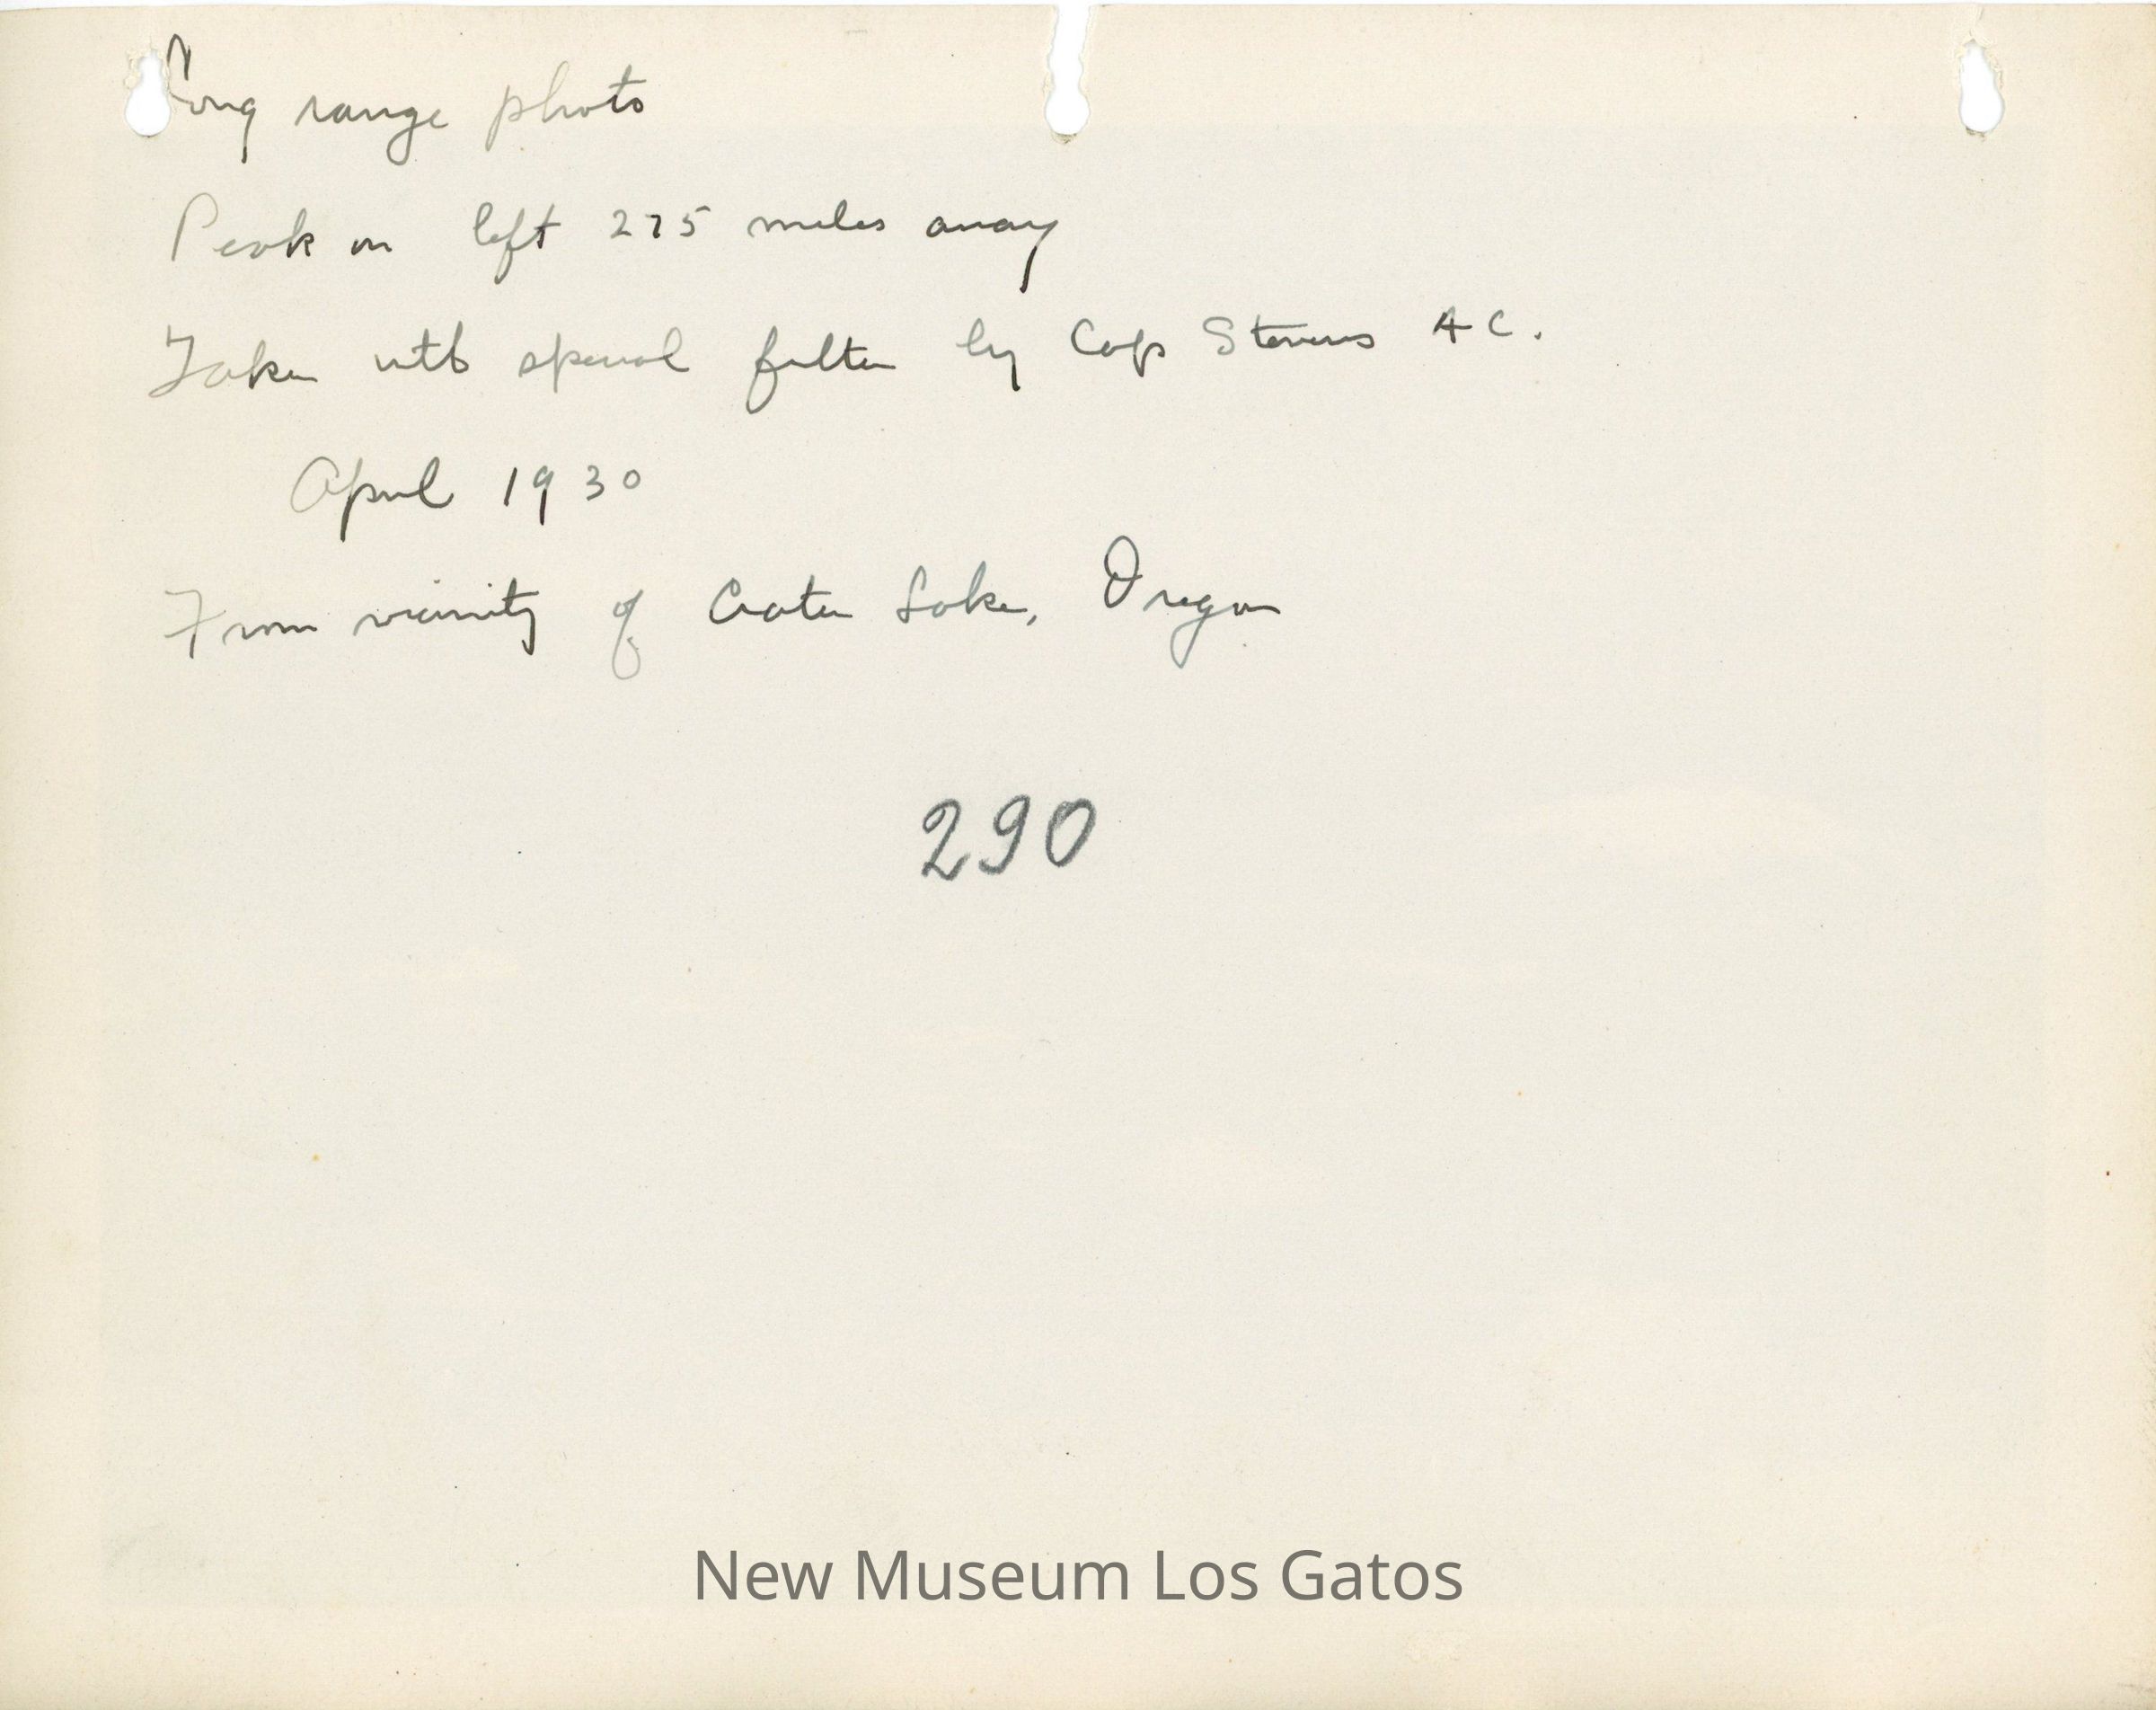 Long range photo
Peak on left 275 miles away
Taken with special filter by Cap Stevens A C.
April 1930
From vicinity of Crater Lake, Oregon
290
New Museum Los Gatos